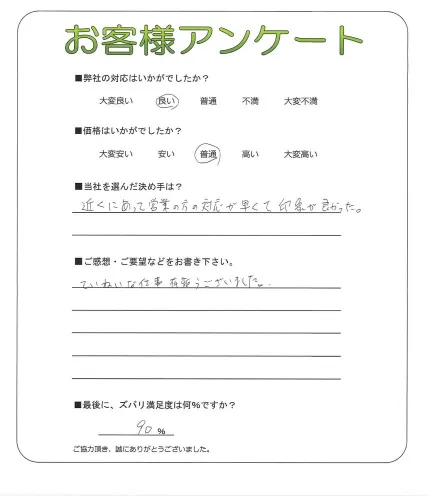 お客様アンケート
■弊社の対応はいかがでしたか？
大変良い 良い 普通 不満 大変不満
■価格はいかがでしたか？
大変安い 安い 普通 高い 大変高い
■当社を選んだ決め手は？
近くにあって営業の方の対応が早くて印象が良かった。
■ご感想・ご要望などをお書き下さい。
ていねいな仕事有難うございました。
■最後に、ズバリ満足度は何%ですか？
90 %
ご協力頂き、誠にありがとうございました。